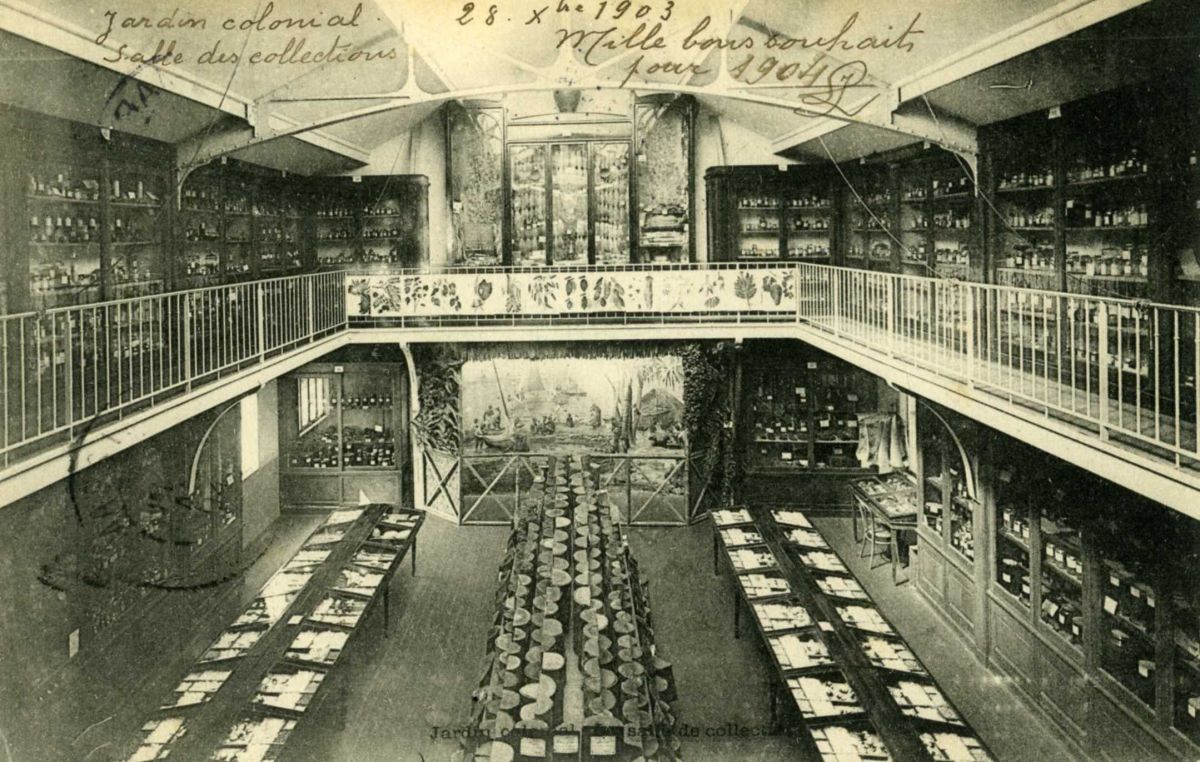 Jardin colonial.
Salle des collections
28. Xbre 1903
Mille bons souhaits
pour 1904
Jardin colonial salle de collections